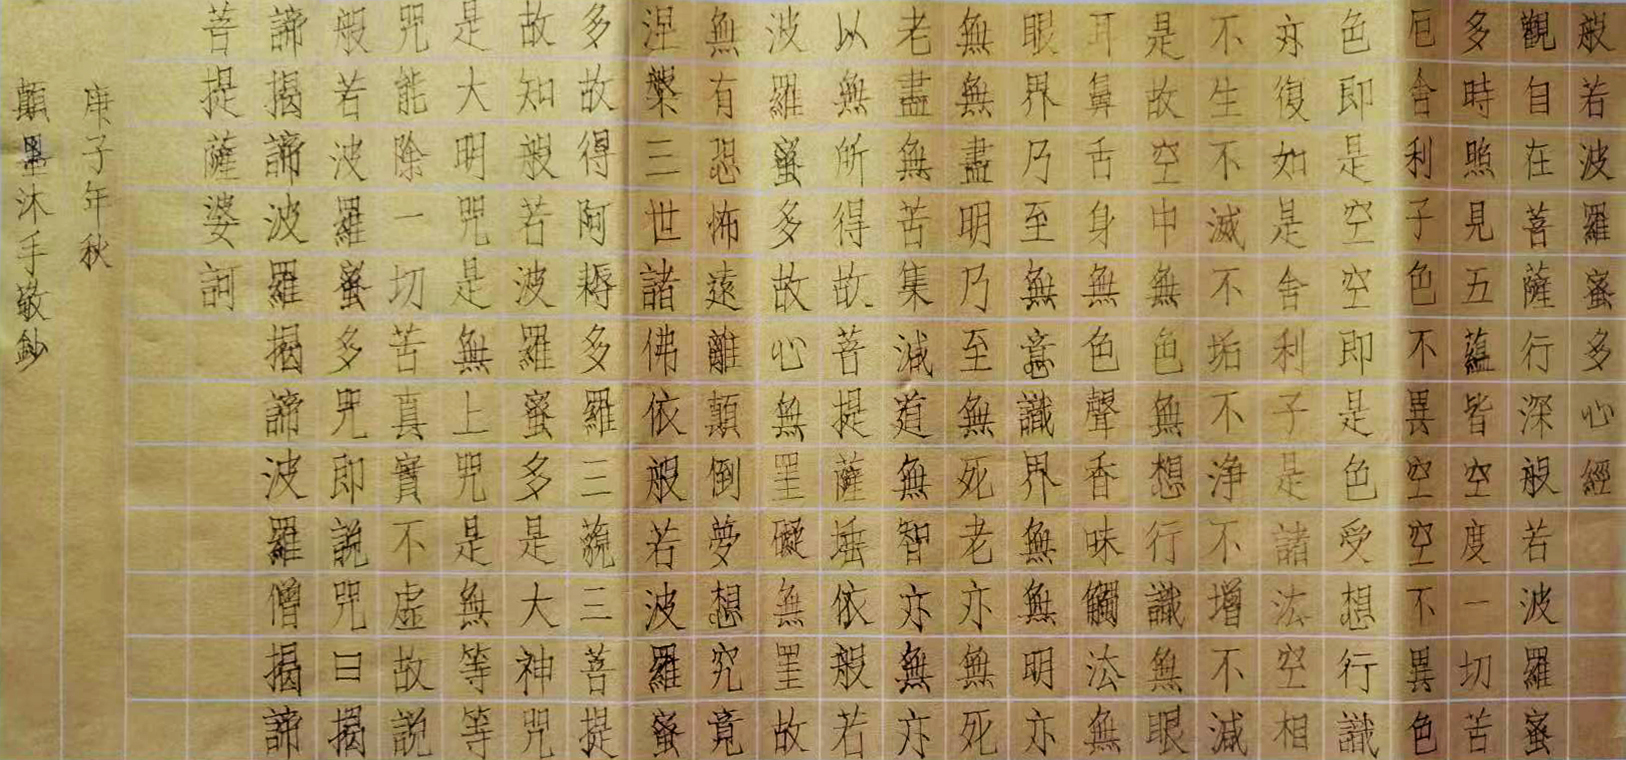 般若波羅蜜多心經
觀自在菩薩行深般若波羅蜜
多時照見五蘊皆空度一切苦
厄舍利子色不異空空不異色
色即是空空即是色受想行識
亦復如是舍利子是諸法空相
不生不滅不垢不淨不增不減
是故空中無色無想行識無眼
耳鼻舌身無色聲香味觸法無
眼界乃至無意識界無無明亦
無無盡明乃至無死老亦無死
老盡無苦集滅道無智亦無亦
以無所得故菩提薩埵依般若
波羅蜜多故心無罣礙無罣故
無有恐怖遠離顛倒夢想究竟
涅槃三世諸佛依般若波羅蜜
多故得阿耨多羅三藐三菩提
故知般若波羅蜜多是大神咒
是大明咒是無上咒是無等等
咒能除一切苦真實不虛故說
般若波羅蜜多咒即說咒曰揭
諦揭諦波羅揭諦波羅僧揭諦
菩提薩婆訶
庚子年秋
顛墨沐手敬鈔